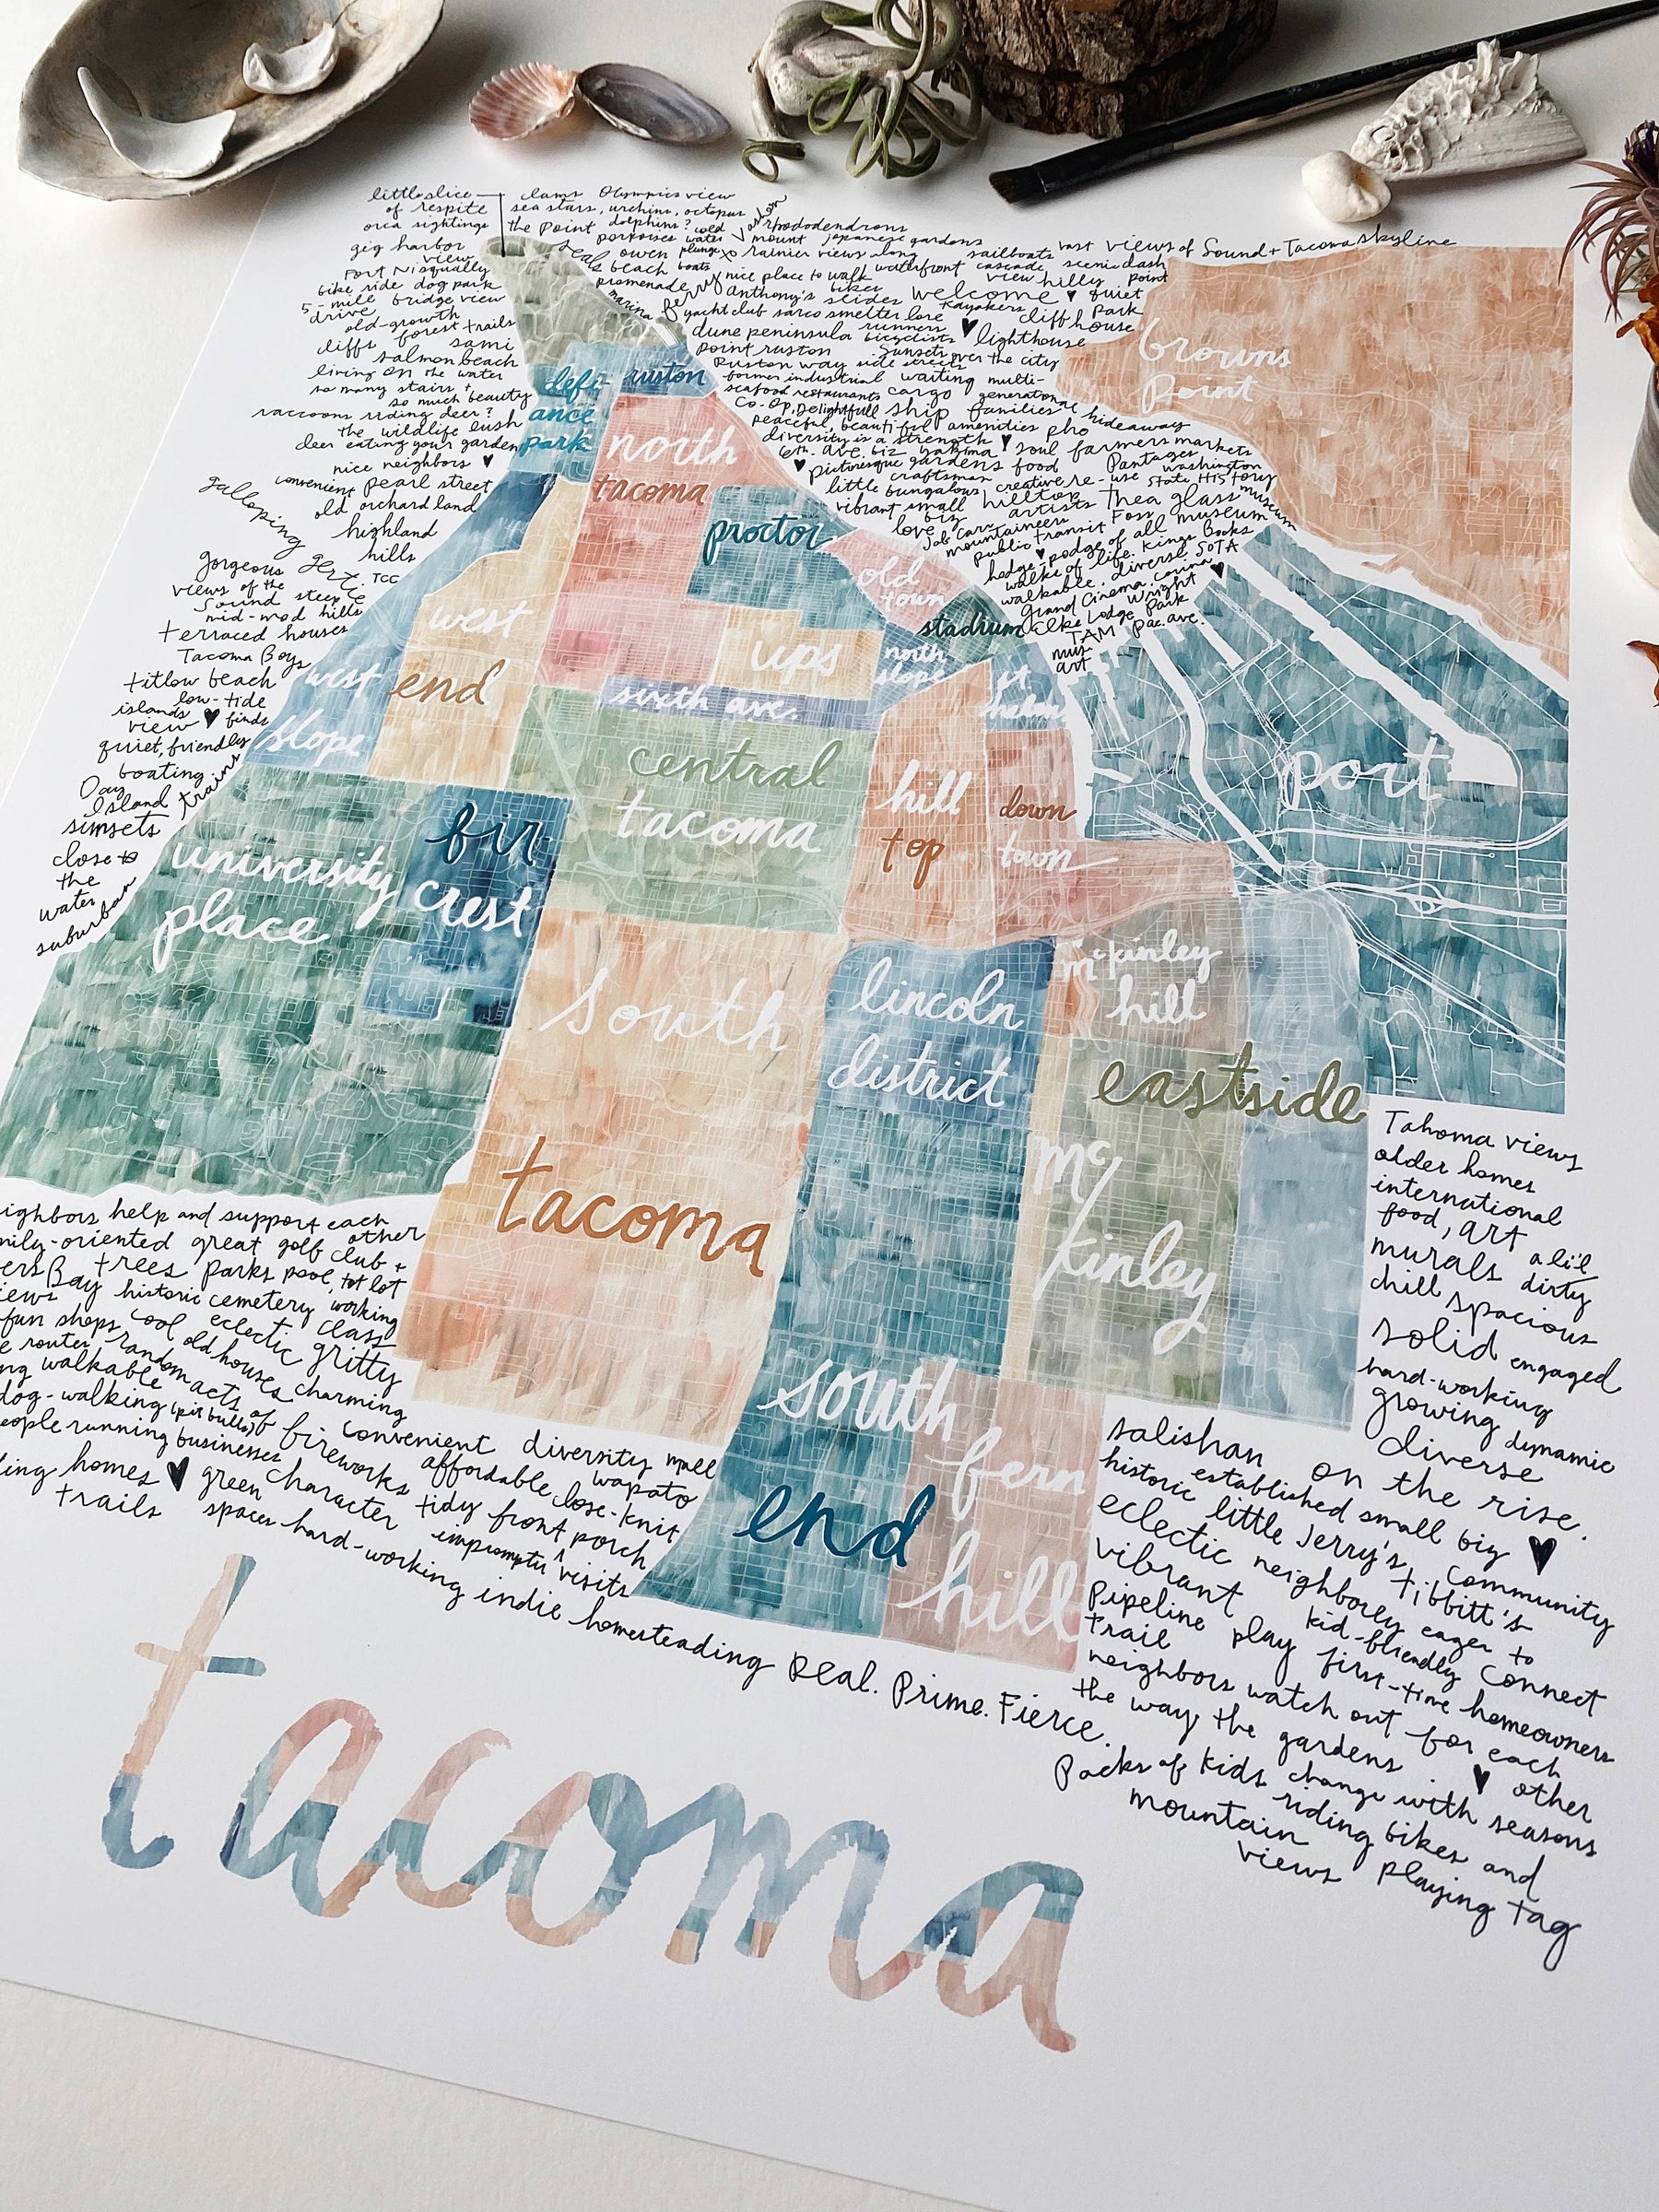 little slice
of respite
orca sightings
gig harbor
view
Fort Nisqually
bike ride dog park
5-mile bridge view
drive
old-growth
cliffs forest trails
sami
salmon beach
living on the water
so many stairs +
so much beauty
raccoons riding deer?
the wildlife lush
deer eating your garden
nice neighbors ♥
convenient pearl street
old orchard land
highland
hills
galloping
gertie
gorgeous
views of the
Sound steep
TCC
mid-mod hills
terraced houses
Tacoma Boys
titlow beach
low-tide
islands
view ♥ finds
quiet, friendly
boating
Day
Island trains
sunsets
close to
the
water
suburban
clams Olympics view
sea stars, urchins, octopus
the Point dolphins? cold
porpoises water
owen plunge
beach boats
promenade
marina
ferry
rhododendrons
mount japanese gardens
rainier views along sailboats
vast views of Sound + Tacoma skyline
nice place to walk waterfront cascade scenic dash
view hilly point
Anthony's slides biker welcome ♥ quiet
yacht club sarco smelter lore kayakers Park
cliff house
dune peninsula runners ♥ lighthouse
bicyclists
point ruston sunsets over the city
Ruston way side streets
former industrial waiting multi-
seafood restaurants cargo generational
Co-op, Delightful ship families hideaway
peaceful, beautiful amenities pho
diversity is a strength ♥ soul farmers markets
6th. ave. biz food Pantages
♥ picturesque gardens washington
craftsman State History
little bungalows creative re-use
vibrant small hilltop Thea glass museum
biz artists
love Job Carr Foss museum
mountaineers
public transit
hodge-podge of all
walks of life. Kings Books
walkable. diverse. SOTA
Grand Cinema. corina ♥
Elks Lodge Wright
Park
TAM pac. ave.
mus
art
browns
Point
defi-
ance
park
ruston
north
tacoma
proctor
old
town
stadium
west
end
ups
north
slope
st
helens
west
slope
sixth ave.
central
tacoma
hill
top
down
town
port
university
place
fir
crest
south
tacoma
lincoln
district
mckinley
hill
eastside
mc
kinley
south
end
fern
hill
Tahoma views
older homes
international
food, art
murals a li'l
chill dirty
spacious
solid engaged
hard-working
growing dynamic
diverse
salishan on the rise.
historic established small biz ♥
eclectic little Jerry's, community
vibrant neighborly Tibbitt's
eager to
Pipeline kid-friendly connect
Trail play first-time homeowners
neighbors watch out for each
other
the way the gardens ♥
change with seasons
Packs of kids riding bikes and
mountain
views playing tag
neighbors help and support each
other
family-oriented great golf club +
trees parks pool, tot lot
historic cemetery working
class
fun shops cool eclectic gritty
random old houses charming
walkable acts of
dog-walking (pit bulls) fireworks convenient diversity mall
people running businesses affordable wapato
homes ♥ green character close-knit
trails spaces tidy front porch
impromptu visits
hard-working indie homesteading Real. Prime. Fierce.
tacoma